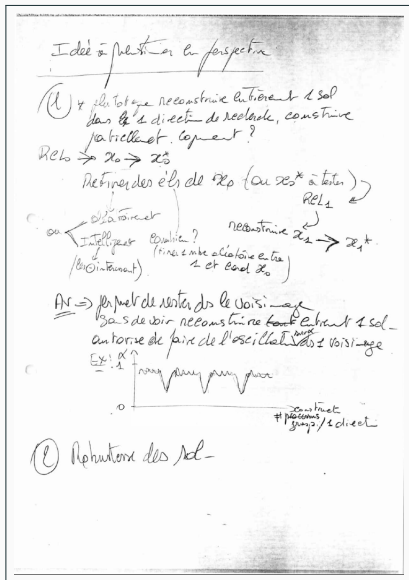 Idée à en perspective
① * plutot que reconstruire entièrement 1 sol
dans 1 direction de recherche, construire
partiellement. Comment ?
REL0 → x0 → x0*
Retirer des éls de x0 (ou x0* à tester)
REL1
ou
aléatoirement
Intelligent
Combien ?
(tirer 1 nbre aléatoire entre
1 et card x0)
reconstruire x1 → x1*
AV => permet de rester ds le voisinage
sans devoir reconstruire entièrement 1 sol-
autorise de faire de l'oscillat ds 1 voisinage
Ex: α
1
0
construct
#
grasp / 1 direct
② Robustesse des sol-